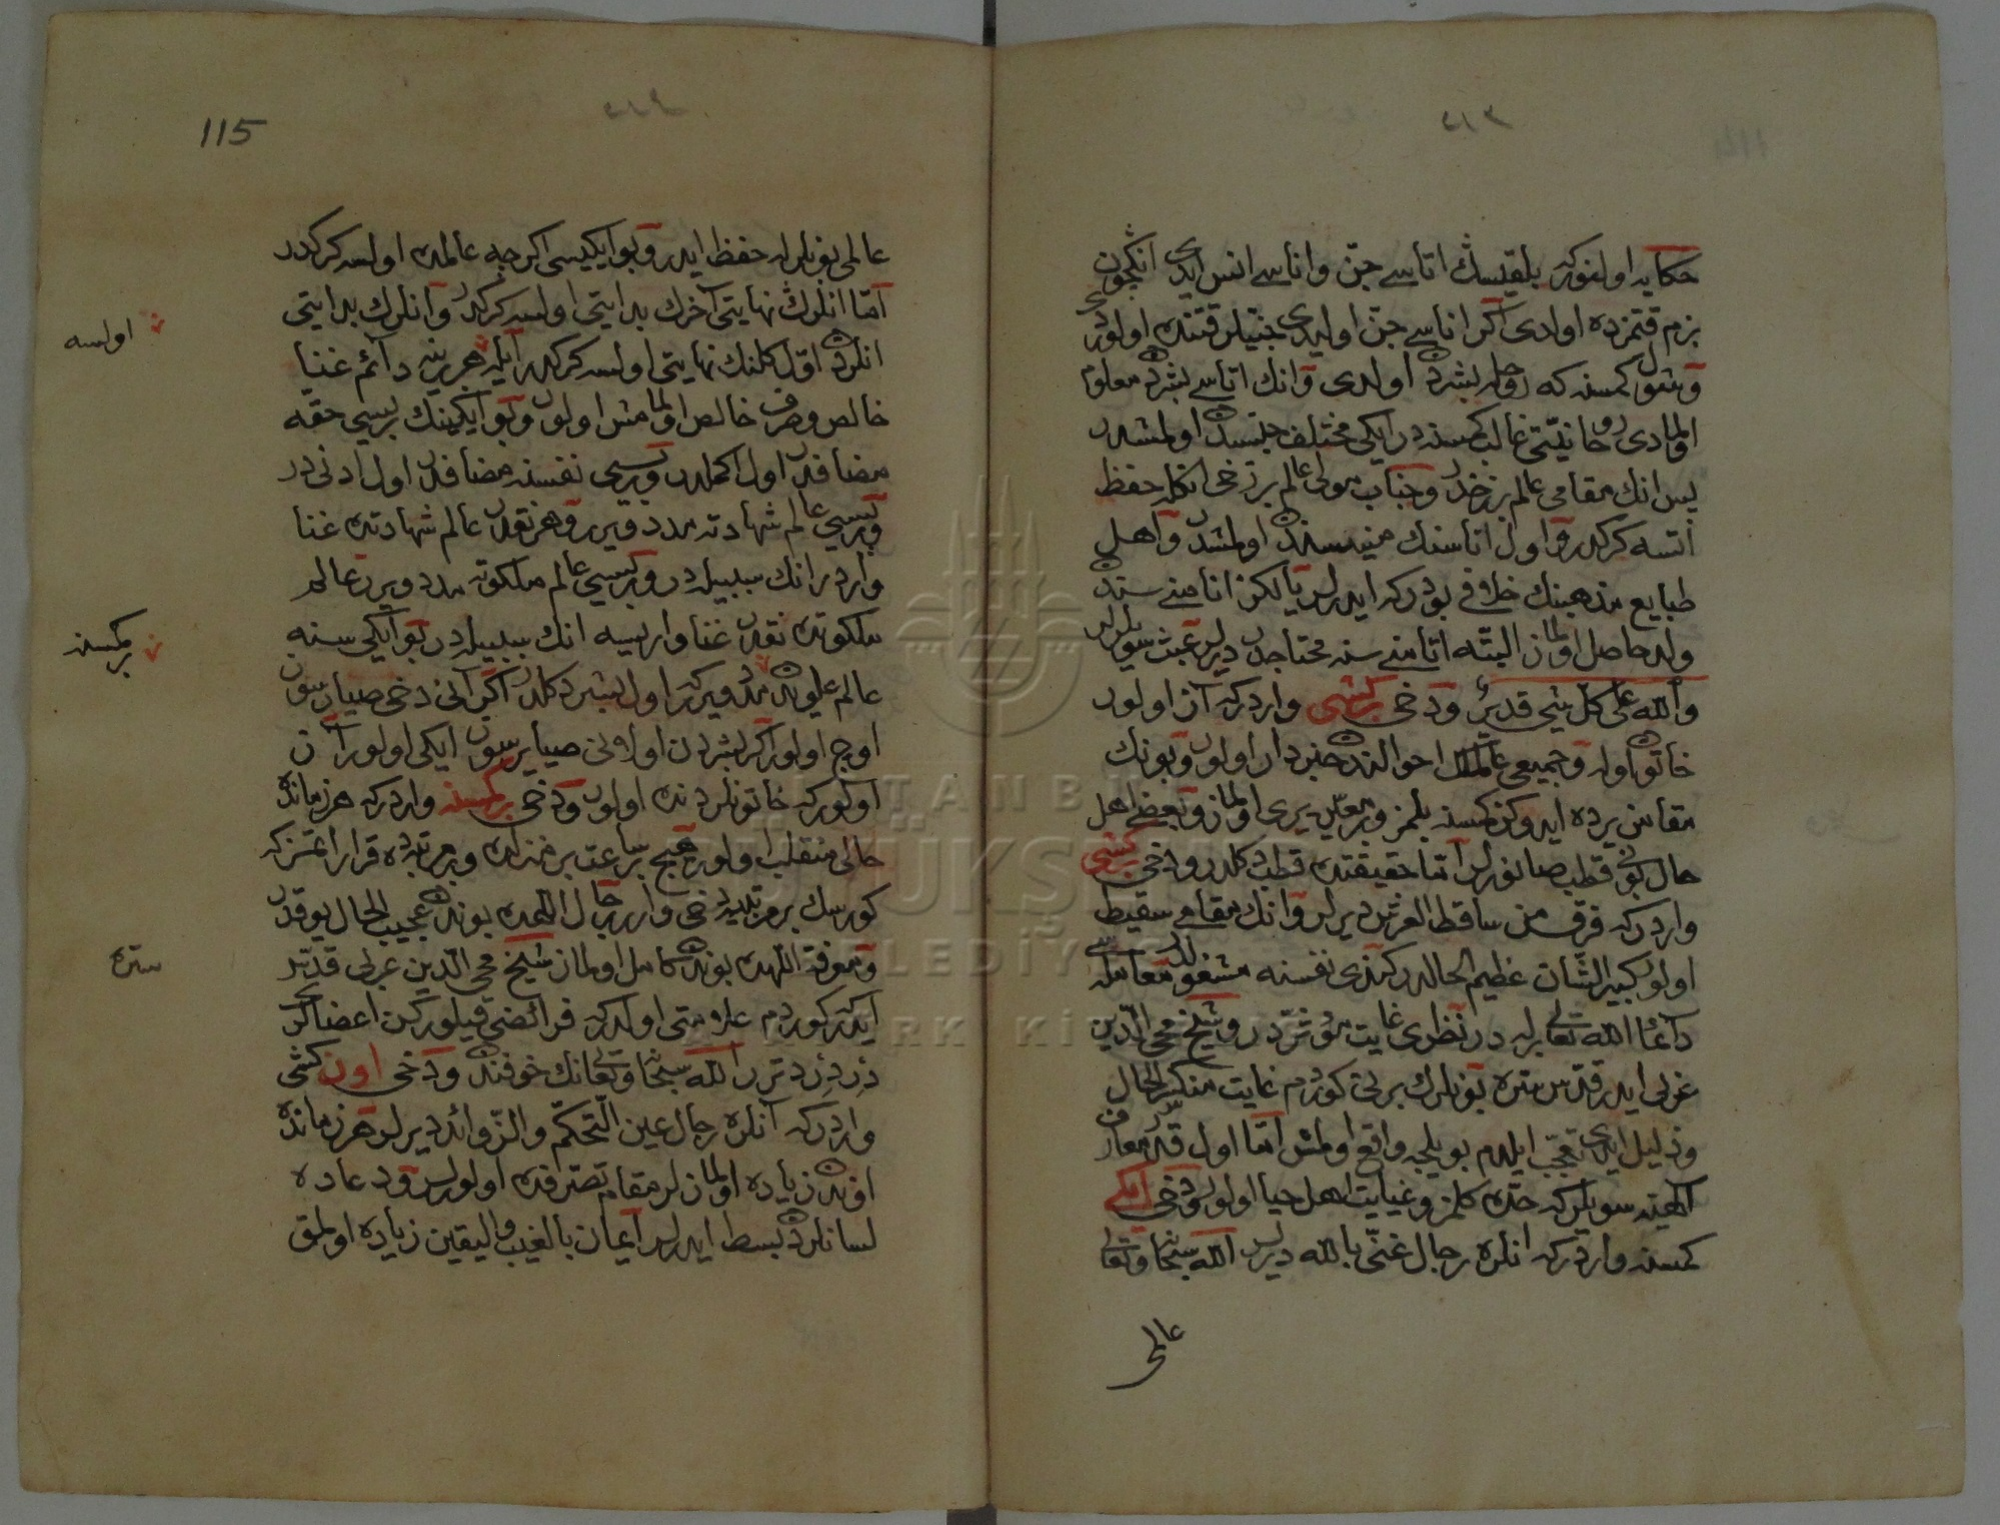 ٢١٣
حكايه اولنوركه بلقيسك اتاسے جنّ واناسے انس ايدى انكچون
بزم قتمزده اولدى اكر اناسے جنّ اوليدى جنّيلر قتنده اولوردى
وشول كمسنه كه روحله بشردن اولدى وانك اتاسے بشردن معلوم
اولمادى روحانيّتى غالب كمسنه در ايكى مختلف جنسدن اولمشدر
پس انك مقامى عالم برزخدر وجناب مولى عالم برزخى انكله حفظ
اتسه كركدر واول اناسنك منيسندن اولمشدر واهل
طبايع مذهبنك خلافى بودركه ايدرلر يالكز انا منے سندن
ولد حاصل اولماز البتّه اتا منے سنه محتاجدر ديرلر عبث سويلرلر
والله على كل شيء قدير ودخى بر كشى واردركه آز اولور
خاتون اوله وجميعى عالمك احوالندن خبردار اولور وبونك
مقامن يرده ايدوكن كمسنه بلمز ومعيّن يرى اولماز وبعض اهل
حال بونى قطب صانورلر امّا حقيقتده قطب دكلدر ودخى بر كشى
واردركه فرق من ساقط العرش ديرلر وانك مقامے سقيط
اولور كبير الشّان عظيم الحالدر كندى نفسنه مشغولدر معامله سے
دآئما الله تعالى ايله در نظرى غايت مؤثّردر وشيخ محى الدّين
عربى ايدر قدّس سرّه بونلرك برنى كوردم غايت منكسر الحال
وذليل ايدى تعجّب ايلدم بويلجه واقع اولمش امّا اول قدر معارف
الٰهيّه سويلركه حدّه كلمز وغايت اهل حيا اولور ودخى ايكى
كمسنه واردركه انلره رجال غنى بالله ديرلر الله سبحانه وتعالى
عالمى
115
٢١٤
عالمى بونلرله حفظ ايدر وبو ايكيسى اكرچه عالمده اولسه كركدر
امّا انلرك نهايتى آخرك بدايتى اولسه كركدر وانلرك بدايتى
انلردن اوّل كلنك نهايتى اولسه كركدر ايله هر برينه دآئم غنيا
خالص وصرف خالص اولمامش اولور وبو ايكينك بريسى حقّه
مضافدر اول اكملدر وبريسى نفسنه مضافدر اول ادنىدر
وبريسى عالم شهادته مدد ويرر وهر نقدر عالم شهادتده غنا
واردر انك سببيلهدر وبريسى عالم ملكوته مدد ويرر عالم
ملكوتده نقدر غنا واريسه انك سببيلهدر بو ايكى سنه
عالم علويدن مدد ويركه اول بشر دكلدر اكر آنى دخى صيارسون
اوچ اولور اكر بشردن اولانى صيارسون ايكى اولور آن
اولوركه خاتونلردنده اولور ودخى بر كمسنه واردركه هر زمانده
حالى منقلب اولور هيچ بر ساعت بر منزلده وبر مرتبهده قرار ايتمزكه
كورسك بر مرتبهيه دخى وارر رجال اللّهده بوندن عجيب الحال يوقدر
ومعرفة اللّهده بوندن كامل اولماز شيخ محى الدّين عربى قدّس
ايدركه كوردم علامتى اولدركه فرائضى قيلوركن اعضالرى
دزدزد ترر الله سبحانه وتعالى انك خوفندن ودخى اون كشى
واردركه آنلره رجال عين التّحكّم والزّوائد ديرلر هر زمانده
اوندن زياده اولمازلر مقام تصرّفده اولورلر ودعاده
لسانلردن بسط ايدرلر ايمان بالغيب واليقين زياده اولمق
اولسه
بر كمسنه
سرّه